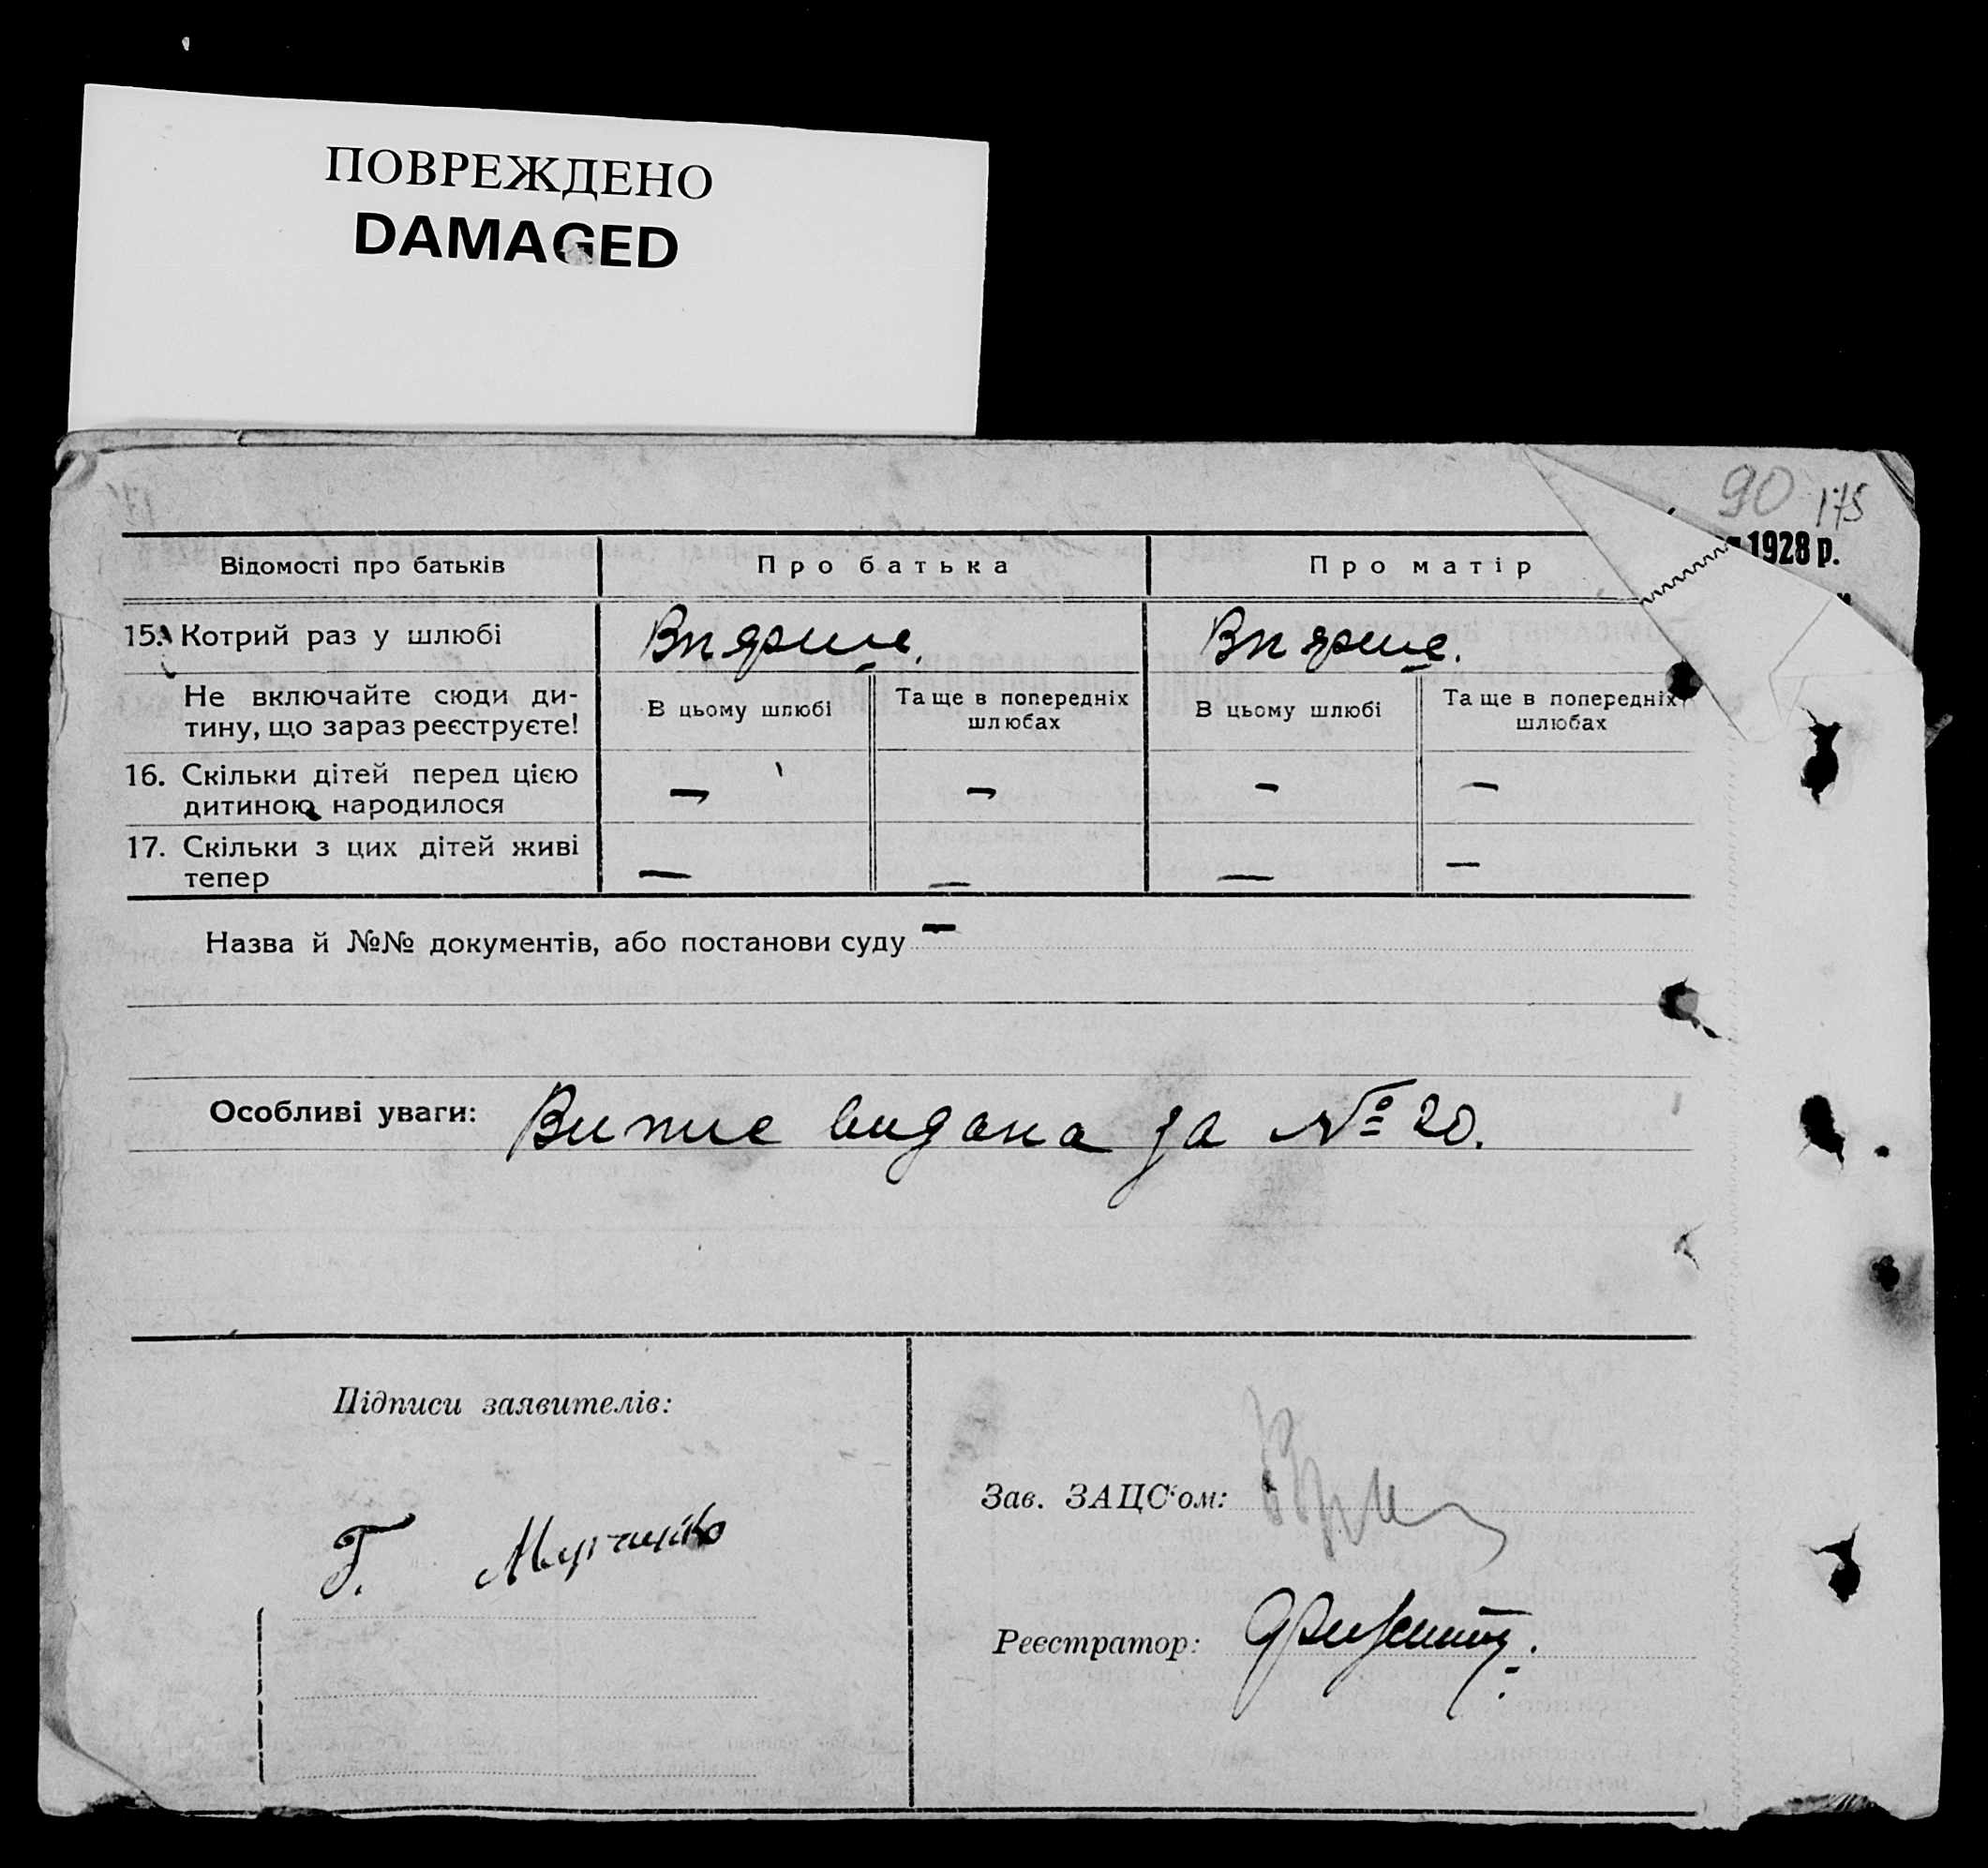 ПОВРЕЖДЕНО
DAMAGED
90 175
1928 р.
Відомості про батьків
Про батька
Про матір
15. Котрий раз у шлюбі
Вперше.
Вперше.
Не включайте сюди ди-
тину, що зараз реєструєте!
В цьому шлюбі
Та ще в попередніх
шлюбах
В цьому шлюбі
Та ще в попередніх
шлюбах
16. Скільки дітей перед цією
дитиною народилося
— — — —
17. Скільки з цих дітей живі
тепер
— — — —
Назва й №№ документів, або постанови суду —
Особливі уваги: Випис видана за № 20.
Підписи заявителів:
Г.
Зав. ЗАЦС'ом:
Реєстратор: